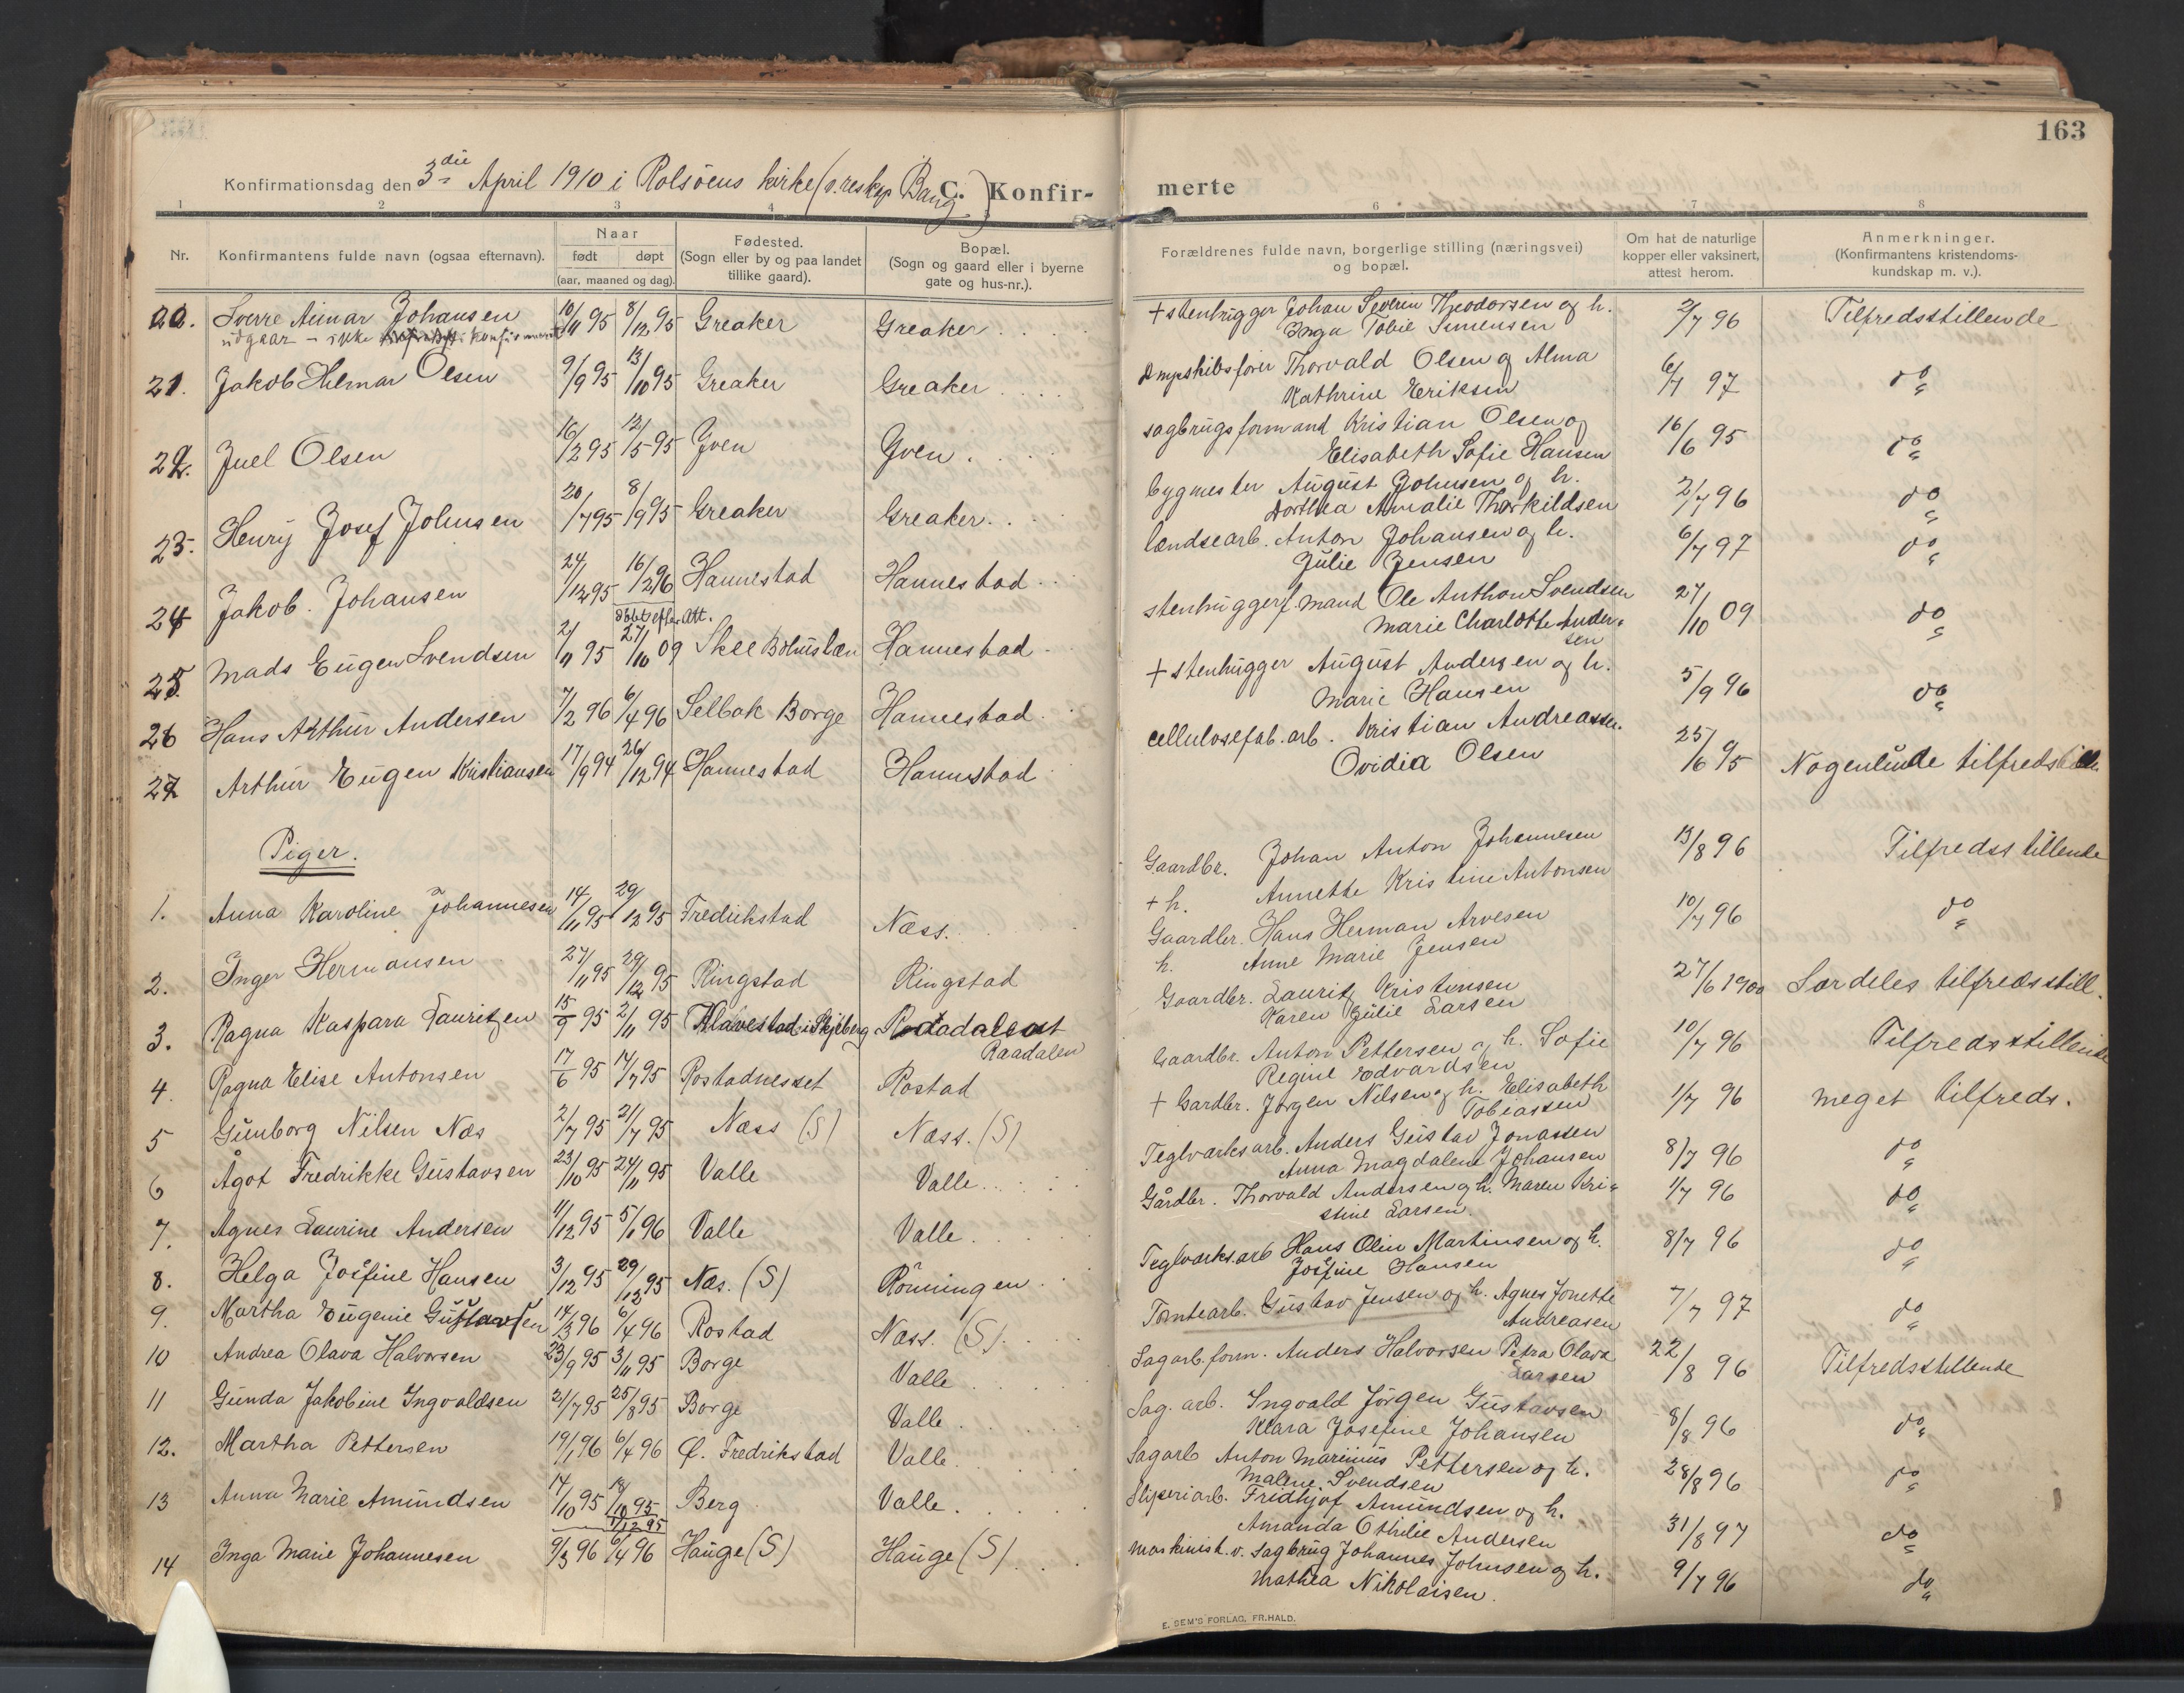 163
Konfirmationsdag den 3die April 1910 i Rolsöens kirke (v. res kap Bang) C. Konfir- merte
1 2 3 4 5 6 7 8
Nr. Konfirmantens fulde navn (ogsaa efternavn). Naar født døpt (aar, maaned og dag). Fødested. (Sogn eller by og paa landet tillike gaard). Bopæl. (Sogn og gaard eller i byerne gate og hus-nr.). Forældrenes fulde navn, borgerlige stilling (næringsvei) og bopæl. Om hat de naturlige kopper eller vaksinert, attest herom. Anmerkninger. (Konfirmantens kristendoms- kundskap m. v.).
Sverre Aimar Johansen 10/11 95 8/12 95 Greaker Greaker + stenhugger Johan Severin Theodorsen og h. 2/7 96 Tilfredsstillende
udgaar - ikke konfirmeret Inga Tobie Simensen
21. Jakob Hilmar Olsen 9/9 95 13/10 95 Greaker Greaker Dmpskibsfører Thorvald Olsen og Alma 6/7 97 do
Kathrine Eriksen
22. Juel Olsen 16/2 95 12/5 95 Yven Yven. sagbrugsformand Kristian Olsen og 16/6 95 do
Elisabeth Sofie Hansen
23. Henry Josef Johnsen 20/7 95 8/9 95 Greaker Greaker. bygmester August Johnsen og h. 2/7 96 do
Dorthea Amalie Thorkildsen
24 Jakob. Johansen 24/12 95 16/2 96 Hannestad Hannestad lændsearb. Anton Johansen og h. 6/7 97 do
Julie Jensen
döbt efter Att.
25. Mads Eugen Svendsen 2/11 95 27/10 09 Skee Bohuslæn Hannestad stenhuggerf.mand Ole Anthon Svendsen 27/10 09 do
Marie Charlotte Ander-
sen
26 Hans Arthur Andersen 7/2 96 6/4 96 Selbak Borge Hannestad + stenhugger August Andersen og h. 5/9 96 do
Marie Hansen
27 Arthur Eugen Kristiansen 17/9 94 26/12 94 Hannestad Hannestad cellulosefab. arb. Kristian Andreassen. 25/6 95 Nogenlunde tilfredstill
Ovidia Olsen
Piger.
1. Anna Karoline Johannesen 14/11 95 29/12 95 Fredrikstad Næss. Gaardbr. Johan Anton Johannesen 13/8 96 Tilfredsstillende
+ h. Annette Kristine Antonsen
2. Inger Hermansen 27/11 95 29/12 95 Ringstad Ringstad Gaardbr. Hans Herman Arvesen 10/7 96 do
h. Anne Marie Jensen
3. Ragna Kaspara Lauritzen 15/9 95 2/11 95 Hlavestad i Skjeberg Raadalen Gaardbr. Lauritz Kristensen 27/6 1900 Særdeles tilfredsstill.
Karen Julie Larsen
4. Ragna Elise Antonsen 17/6 95 14/7 95 Rostadnesset Rostad Gaardbr. Anton Pettersen og h. Sofie 10/7 96 Tilfredsstillende
Regine Edvardsen
5 Gunborg Nilsen Næs 2/7 95 21/7 95 Næss (S) Næss. (S) + Gardbr. Jørgen Nilsen og h. Elisabeth 1/7 96 meget tilfreds.
Tobeassen
6 Ågot Fredrikke Gustavsen 23/10 95 24/11 95 Valle Valle. Teglværksarb. Anders Gustav Jonassen 8/7 96 do
Anna Magdalene Johansen
7. Agnes Laurine Andersen 11/12 95 5/1 96 Valle Valle. Gårdbr. Thorvald Andersen og h. Maren Kri- 1/7 96 do
stine Larsen.
8. Helga Josefine Hansen 3/12 95 29/12 95 Næs. (S) Rönningen. Teglværks.arb Hans Olin Martinsen og h. 8/7 96 do
Josefine Hansen
9. Martha Eugenie Gustavsen 14/3 96 6/4 96 Rostad Næss. (S). Tomtearb. Gustav Jensen og h. Agnes Jonette 7/7 97 do
Andreasen
10 Andrea Olava Halvorsen 23/9 95 3/11 95 Borge Valle Sagarb.form. Anders Halvorsen Petra Olava 22/8 96 Tilfredsstillende
Larsen
11 Gunda Jakobine Ingvaldsen 21/7 95 25/8 95 Borge Valle. Sag. arb. Ingvald Jørgen Gustavsen 8/8 96 do
Klara Josefine Johansen
12. Martha Pettersen 19/1 96 6/4 96 Ø. Fredrikstad Valle. Sagarb Anton Marinius Pettersen og h. 28/8 96 do
Malene Svendsen
13 Anna Marie Amundsen 14/10 95 1/12 95 Berg Valle. Sliperiarb. Fridhjof Amundsen og h. 31/8 97 do
Amanda Othilie Andersen
14 Inga Marie Johannesen 9/3 96 6/4 96 Hauge (S) Hauge (S). maskinist. v. Sagbrug Johannes Johnsen og h. 9/7 96 do
Mathea Nikolaisen.
E. SEM'S FORLAG, FR.HALD.